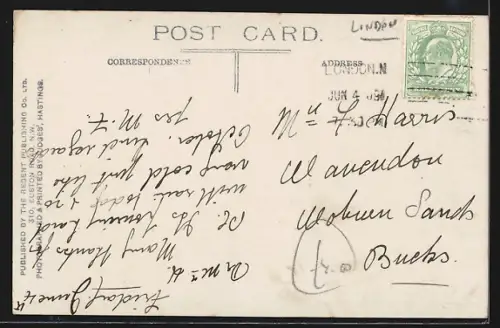 LONDON
POST CARD.
CORRESPONDENCE
ADDRESS
LONDON.N
JUN 4 09
7.30 PM
Friday June 4
Dr Mrs H.
Many thanks for
pc. Is pouring hard
with rain today & so
very cold just like
October. Kind regards
frs M. F.
Mrs F. Harris
Wavendon
Woburn Sands
Bucks.
PUBLISHED BY THE REGENT PUBLISHING Co. LTD.
310, EUSTON ROAD, N.W.
PHOTOGRAPHED & PRINTED BY JUDGES', HASTINGS.